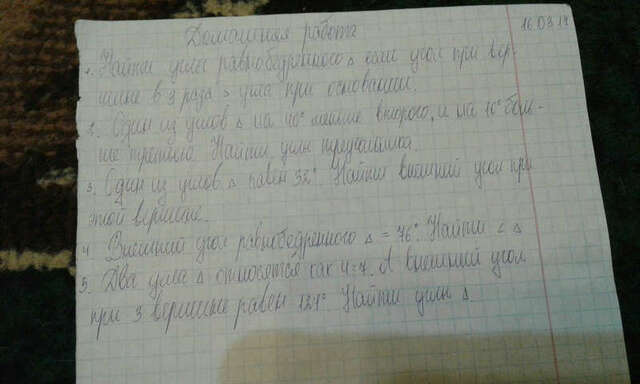 Домашняя работа
16.03.17
1. Найти углы равнобедренного Δ если угол при вер-
шине в 3 раза > угла при основании.
2. Один из углов Δ на 40° меньше второго, и на 10° боль-
ше третьего. Найти углы треугольника.
3. Один из углов Δ равен 32°. Найти внешний угол при
этой вершине.
4. Внешний угол равнобедренного Δ = 76°. Найти ∠ Δ
5. Два угла Δ относятся как 4:7. А внешний угол
при 3 вершине равен 121°. Найти углы Δ.